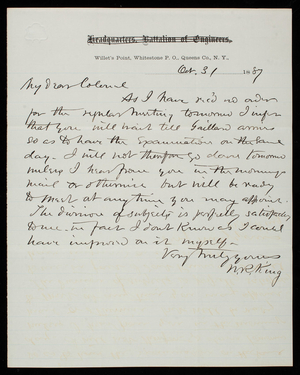 Headquarters, Battalion of Engineers,
Willet's Point, Whitestone P. O., Queens Co., N. Y.,
Oct. 31 1887
My dear Colonel
As I have rec'd no order
for the regular meeting tomorrow I infer
that you will wait till Gaillard arrives
so as to have the examination on the same
day. I will not therefore go down tomorrow
unless I hear from you in the morning
mail or otherwise but will be ready
to meet at any time you may appoint.
The division of subjects is perfectly satisfactory
to me – in fact I don't know as I could
have improved on it myself –
Very truly yours
W. R. King